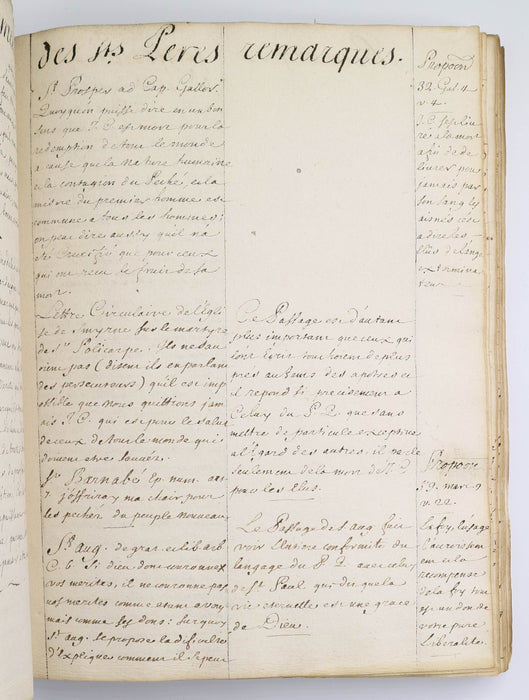 des Sts Peres remarques.
St Prosper ad Cap. Gallor.
Quoyquon puisse dire en un bon
sens que J. C. est mort pour la
redemption de tout le monde
a cause que la nature humaine
et la contagion du Peché, et la
misere du premier homme est
commune a tous les hommes;
on peut dire aussy qu'il n'a
été crucifié que pour ceux
qui ont receu le fruit de sa
mort.
Lettre Circulaire de l'Egli
se de Smyrne sur le martyre
de St Policarpe. Ils ne sau
oient pas (disent ils en parlant
des persecuteurs) qu'il est imp
ossible que nous quittions jam
ais J. C. qui est pour le salut
de ceux de tout le monde qui
doivent etre sauvés.
St Barnabé Ep. num.
7. j'offriray ma chair pour
les pechez du peuple nouveau.
St aug. de grat. et lib. arb.
C. 6. Si dieu donc couronne
vos merites, il ne couronne pas
vos merites comme etant a vous
mais comme ses dons. Sur quoy
St aug. se propose la difficulté
d'expliquer comment il se peut
Ce Passage est d'autant
plus important que ceux qui
de plus
prés au tems des apostres et
il repond si precisement a
Celuy du P. Q. que sans
mettre de particule exceptive
a l'égard des autres, il parle
seulement de la mort de J. C.
pour les Elus.
Le Passage de St aug. fait
voir l'entiere conformité du
langage du P. Q. avec celuy
de St Paul qui dit que la
vie eternelle est une grace
de Dieu.
Propoon
32. Gal. 4
v. 4.
J. C. s'est liv
ré a la mort
afin de de
livrer pour
jamais par
son sang les
ainés cest
a dire les
Elus de l'ange
extermina
teur.
Propoon
69. marc 9
v. 22.
la foy, l'usage
l'accroissem
ent et la
recompense
de la foy tout
est un don de
votre pure
liberalité.